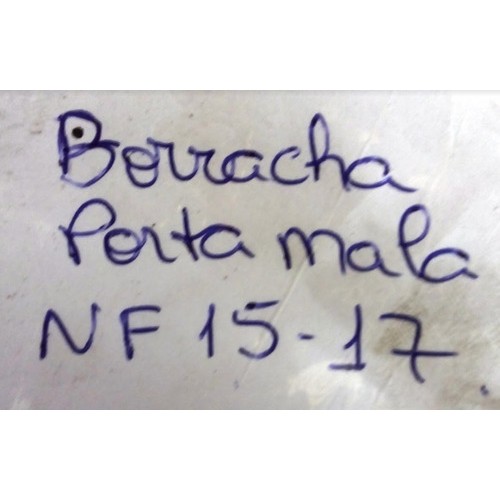 Borracha
Porta mala
NF 15-17